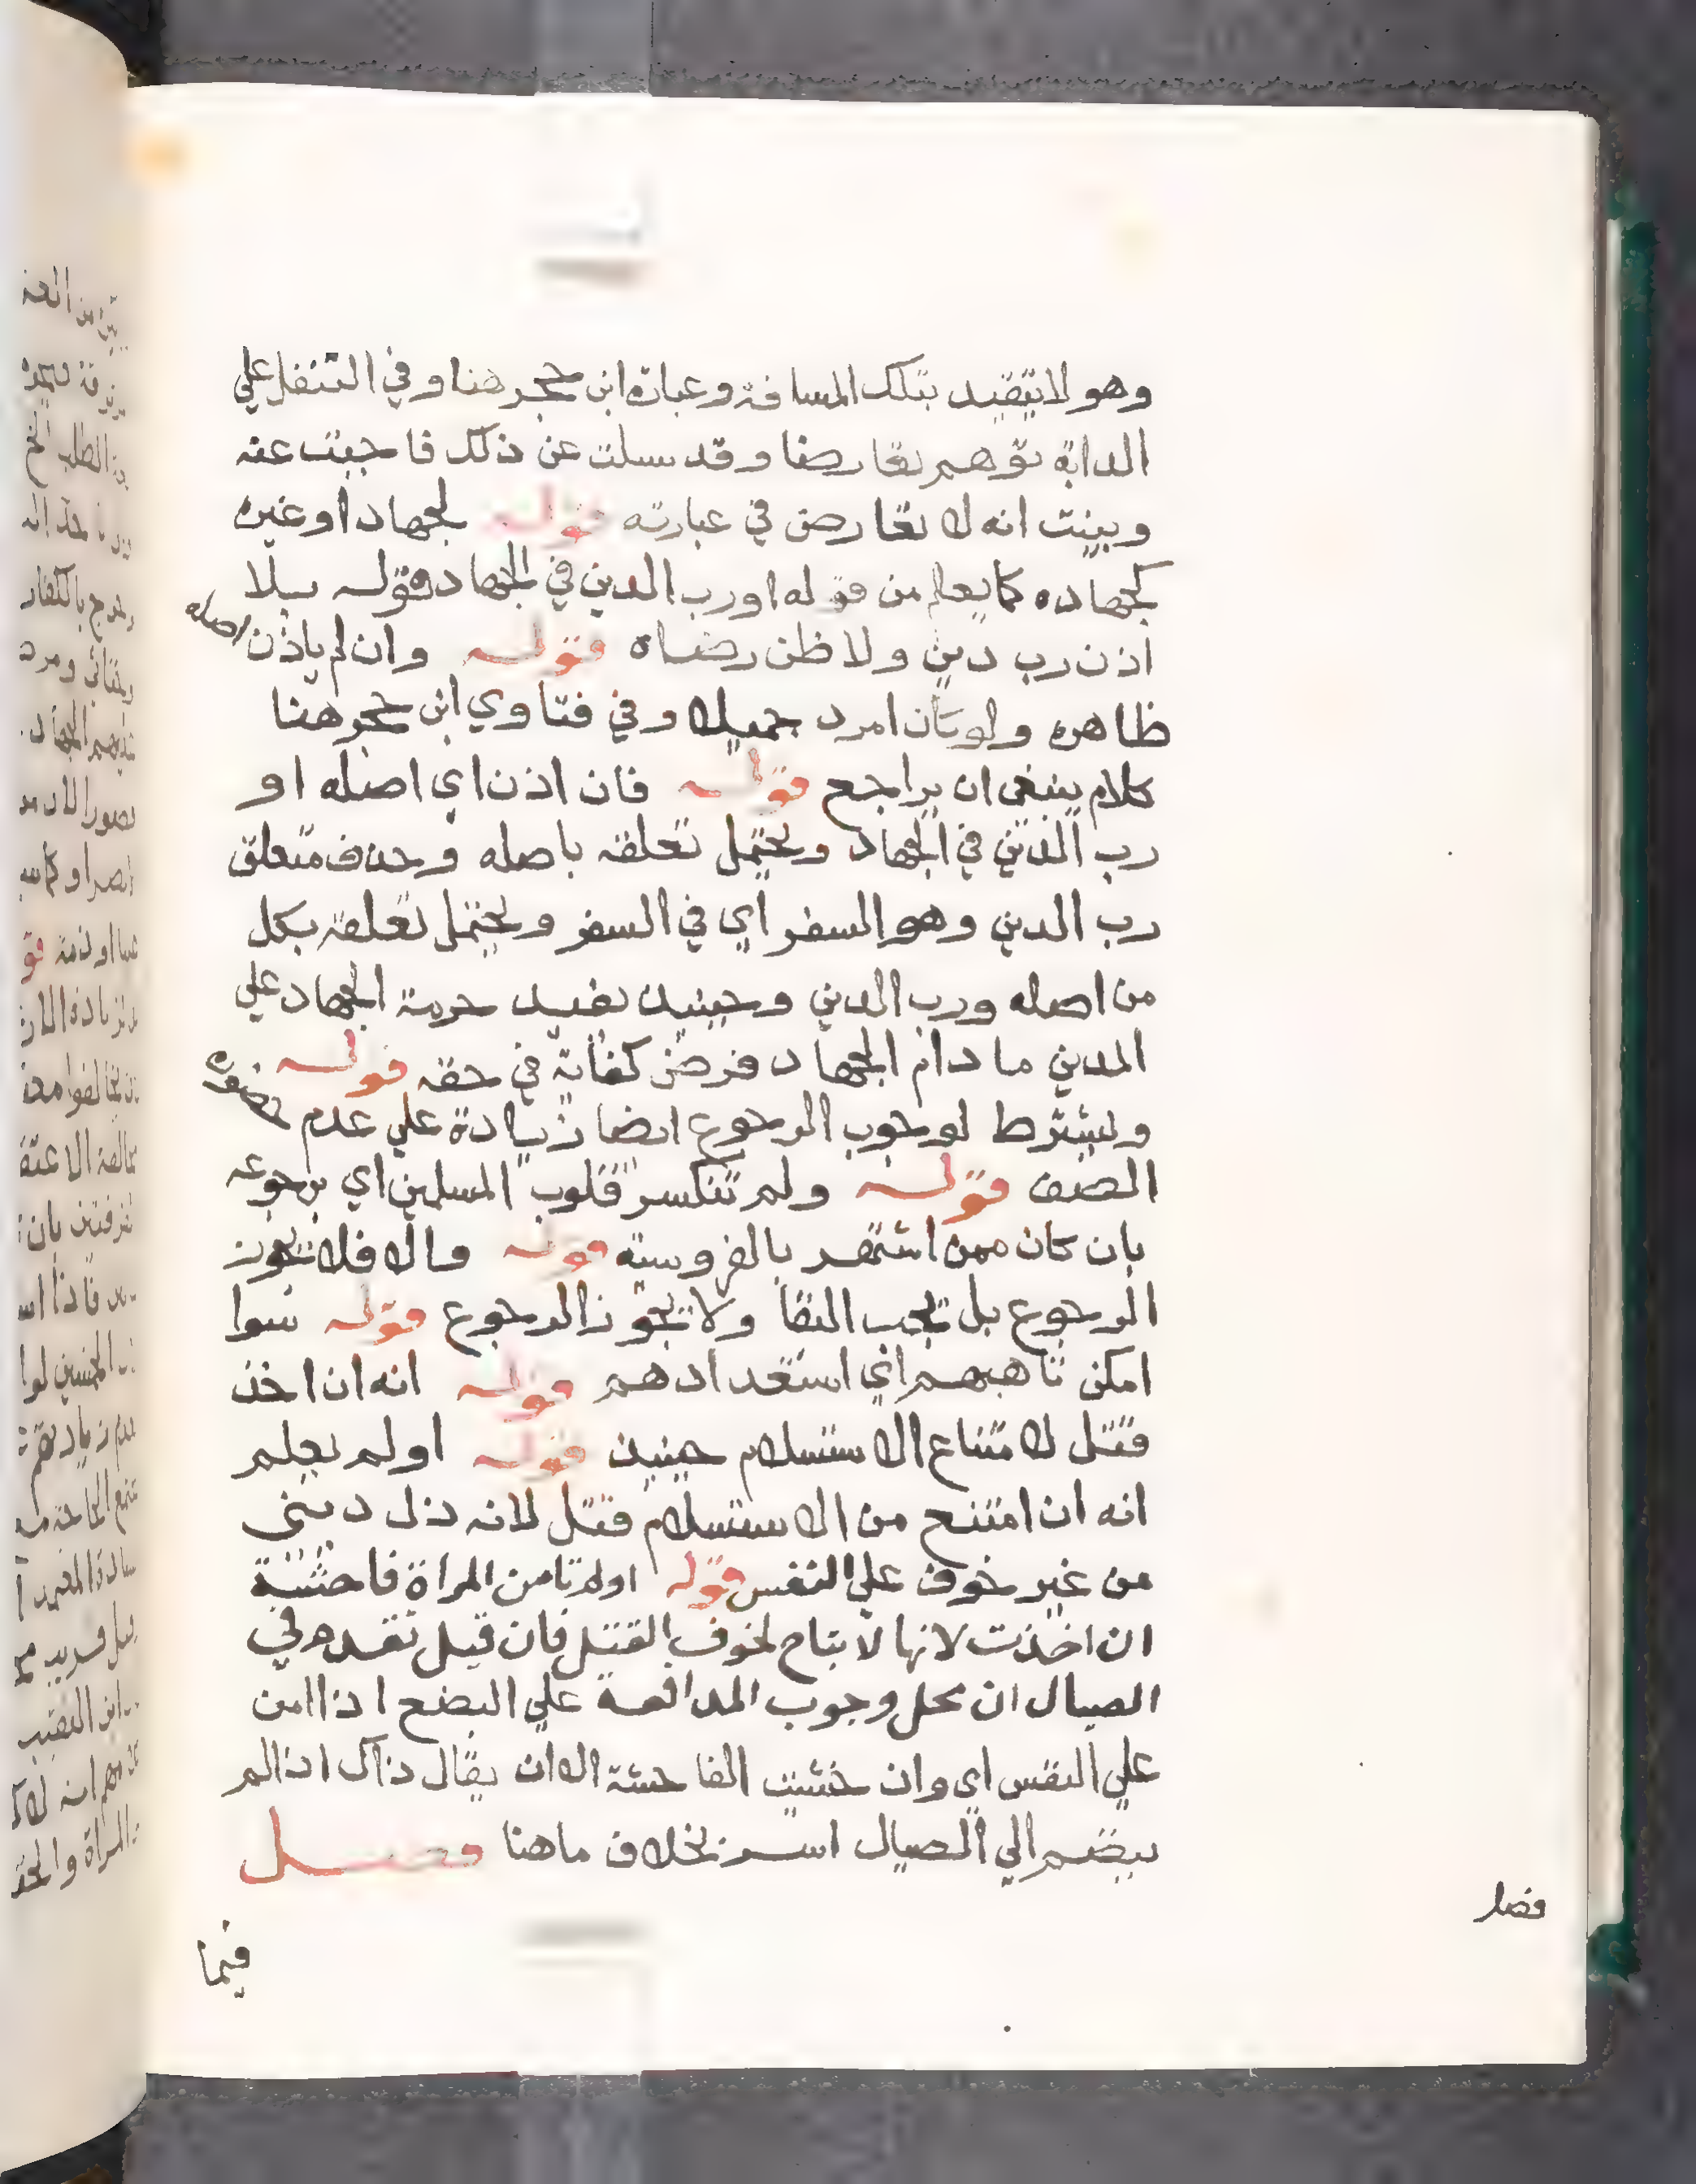 وهو لا يتقيد بتلك المسافة وعبارة ابن حجر هنا وفي التنفل علي
الدابة توهم تعارضا وقد سيلت عن ذلك فاجبت عنه
وبينت انه لا تعارض في عبارته قوله لجهاد او غيره
كجهاده كما يعلم من قوله او رب الدين في الجهاد وقوله بلا
اذن رب دين ولا ظن رضاه قوله وان لم ياذن اصله
ظاهره ولو كان امرد جميلا وفي فتاوي ابن حجر هنا
كلام ينبغي ان يراجع قوله فان اذن اي اصله او
رب الدين في الجهاد ويحتمل تعلقه باصله وحذف متعلق
رب الدين وهو السفر اي في السفر ويحتمل تعلقه بكل
من اصله ورب الدين وحينيذ يفيد حرمة الجهاد علي
المدين ما دام الجهاد فرض كفاية في حقه قوله
ويشترط لوجوب الرجوع ايضا زيادة علي عدم حضوره
الصف قوله ولم تنكسر قلوب المسلمين اي برجوعه
بان كان ممن اشتهر بالفروسية قوله والا فلا يجوز
الرجوع بل يجب البقا ولا يجوز الرجوع قوله سوا
امكن تاهبهم اي استعدادهم قوله انه ان اخذ
قتل لامتناع الاستسلام حينيذ قوله او لم يعلم
انه ان امتنع من الاستسلام قتل لانه ذل ديني
من غير خوف علي النفس قوله او لم تامن المراة فاحشة
ان اخذت لانها لا تباح لخوف القتل فان قيل تقدم في
الصيال ان محل وجوب المدافعة علي البضع اذا امن
علي النفس اي وان خشيت الفاحشة الا ان يقال ذاك اذا لم
ينضم الي الصيال اسر بخلاف ما هنا فصل
فيما
فصل